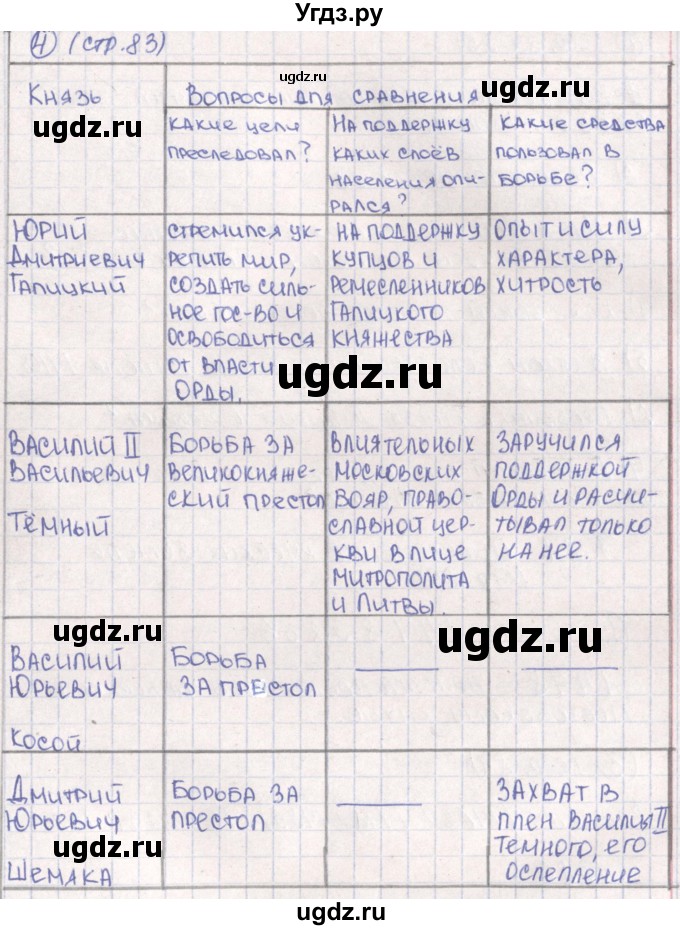 Угдз.ру
④ (стр.83)
ugdz.ru
Князь
Вопросы для сравнения
ugdz.ru
ugdz.ru
какие цели
преследовал?
На поддержку
каких слоёв
населения опи-
рался?
Какие средства
пользовал в
борьбе?
ugdz.ru
Юрий
Дмитриевич
Галицкий
стремился ук-
репить мир,
создать силь-
ное гос-во и
освободиться
от власти
Орды.
на поддержку
купцов и
ремесленников
Галицкого
княжества
опыт и силу
характера,
хитрость
ugdz.ru
Василий II
Васильевич
Тёмный
Борьба за
великокняже-
ский престол
влиятельных
московских
бояр, право-
славной цер-
кви в лице
митрополита
и Литвы.
заручился
поддержкой
Орды и расчи-
тывал только
на нее.
ugdz.ru
ugdz.ru
ugdz.ru
Василий
Юрьевич
Косой
Борьба
за престол
Дмитрий
Юрьевич
Шемака
Борьба за
престол
захват в
плен Василия II
Темного, его
ослепление
ugdz.ru
ugdz.ru